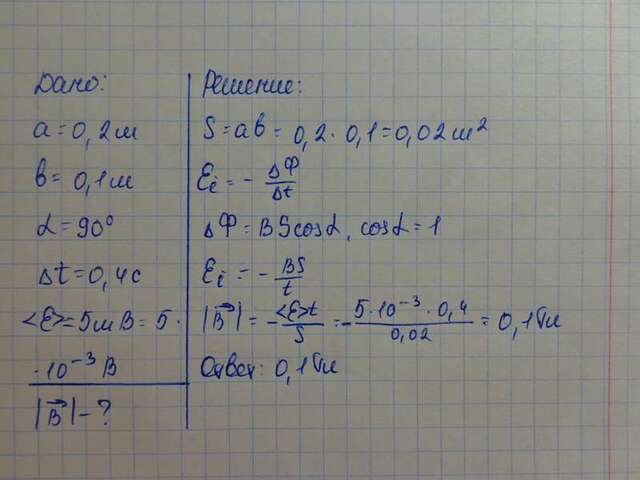 Дано:
a = 0,2м
в = 0,1м
α = 90°
Δt = 0,4с
<Ɛ> = 5мВ = 5 ·
· 10⁻³ В
|B⃗| - ?
Решение:
S = aв = 0,2 · 0,1 = 0,02м²
Ɛi = - ΔФ/Δt
ΔФ = BScosα, cosα = 1
Ɛi = - BS/t
|B⃗| = - <Ɛ>t/S = - 5·10⁻³·0,4/0,02 = 0,1Тл
Ответ: 0,1Тл